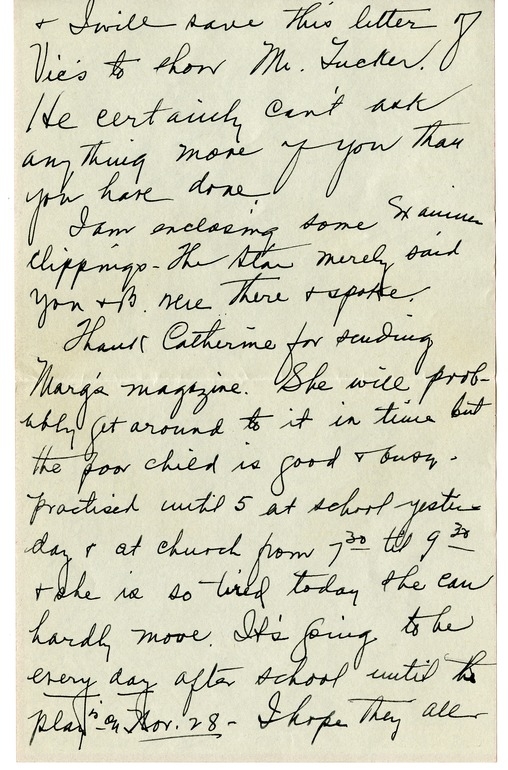 & I will save this letter of
Vic's to show Mr. Tucker.
He certainly can't ask
anything more of you than
you have done.
I am enclosing some Examiner
clippings - the Star merely said
you & B. were there & spoke.
Thank Catherine for sending
Marg's magazine. She will prob-
ably get around to it in time but
the poor child is good & busy -
practised until 5 at school yester-
day & at church from 7 30 til 9 30
& she is so tired today she can
hardly move. It's going to be
every day after school until the
play is on Nov. 28 - I hope they all